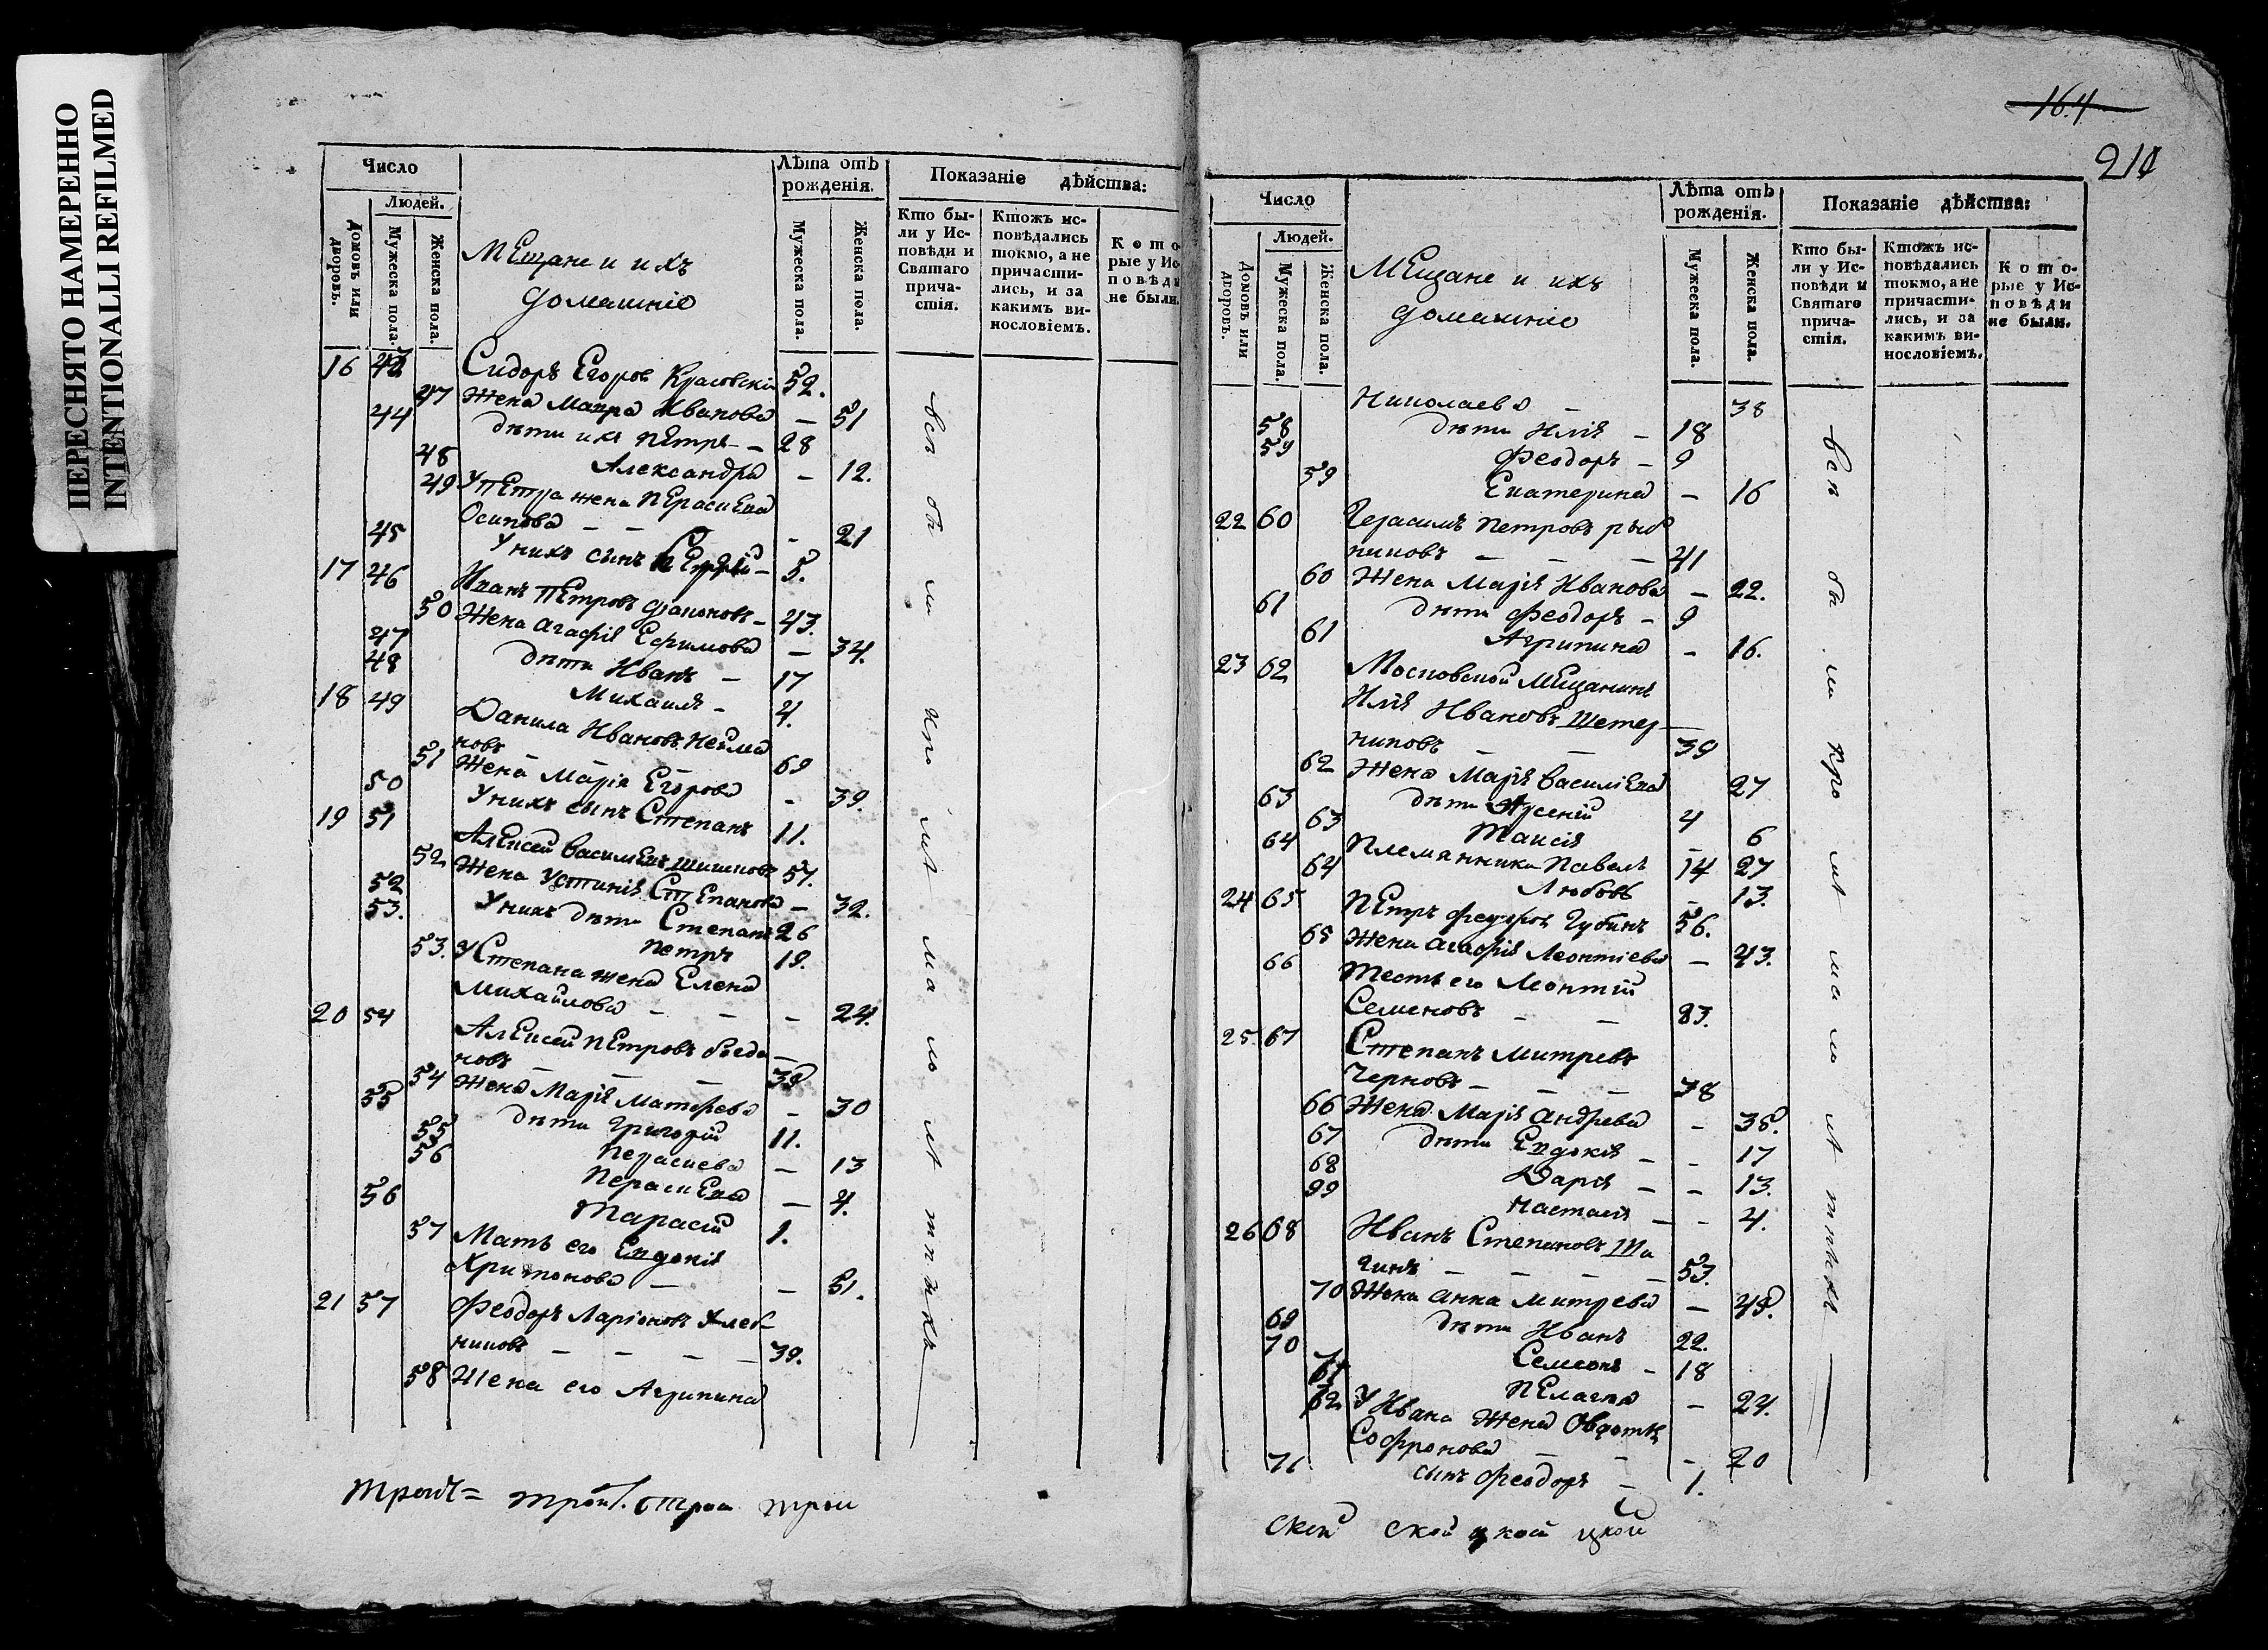 ПЕРЕСНЯТО НАМЕРЕННО
INTENTIONALLI REFILMED
Число
Людей.
Домовъ или дворовъ.
Мужеска пола.
Женска пола.
Мещане и ихъ
домашніе
Лѣта отъ рожденія.
Мужеска пола.
Женска пола.
Показаніе дѣйства:
Кто бы-
ли у Ис-
повѣди и
Святаго
прича-
стія.
Ктожъ ис-
повѣдались
токмо, а не
причасти-
лись, и за
какимъ ви-
нословіемъ.
Кото-
рые у Ис-
повѣди
не были.
16 Сидоръ Егоровъ Красовскій 52.
47 Жена Мавра Иванова — 51
44 дѣти ихъ Петръ — 28
48 Александра — 12.
49 У Петра жена
Осипова — — - 21
45 У нихъ сынъ 5.
17 46 Иванъ Петровъ 43.
50 Жена Агафія Ефимова — 34.
47 дѣти Иванъ — 17
48 Михаилъ - 4.
18 49 Данила Ивановъ
новъ — — 69
51 Жена Марія Егорова - 39.
50 У нихъ сынъ Степанъ 11.
19 51 Алексей Васильевъ Шишковъ 57.
52 Жена Устинія Степанова — 32.
52 У нихъ дѣти Степанъ 26
53. Петръ 19.
53. У Степана жена Елена
Михайлова — — - 24.
20 54 Алексей Петровъ
новъ — — —
54 Жена Марія Матфеева - 30
55 дѣти Григорій 11.
55 — 13
56 — 4.
56 Тарасій 1.
57 Мать его Евдокія
Харитонова — — 51.
21 57 Феодоръ Ларіоновъ Хлеб-
никовъ — — — — 39.
58 Жена его Агрипина
всѣ были при святомъ
трои
164
Число
Людей.
Домовъ или дворовъ.
Мужеска пола.
Женска пола.
Мещане и ихъ
домашніе
Лѣта отъ рожденія.
Мужеска пола.
Женска пола.
Показаніе дѣйства:
Кто бы-
ли у Ис-
повѣди и
Святаго
прича-
стія.
Ктожъ ис-
повѣдались
токмо, а не
причасти-
лись, и за
какимъ ви-
нословіемъ.
Кото-
рые у Ис-
повѣди
не были.
Николаева — 38
58 дѣти Илія — 18
59 Феодоръ — 9
59 Екатерина — 16
22 60 Герасимъ Петровъ Рыб
никовъ — — — 41
60 Жена Марія Иванова — 22.
61 дѣти Феодоръ — 9
61 Агрипина - 16.
23 62 Московской Мещанинъ
Илія Ивановъ Шетер-
никовъ — — 39
62 Жена Марія Васильева 27
63 дѣти Арсеній 4
63 Таисія - 6
64 Племянники Павелъ 14 27
64 Любовь - 13.
24 65 Петръ Федоровъ Губинъ 56.
65 Жена Агафія Леонтіева — 43.
66 Тесть его Леонтій
Семеновъ — — 83.
25 67 Степанъ Митревъ
Черновъ — — — 38
66 Жена Марія Андреева - 35.
67 дѣти Евдокія — - 17
68 Дарія — - 13.
99 Настасія — - 4.
26 68 Иванъ Степановъ Ша
гинъ — — — — 53.
70 Жена Анна Митрева —
69 дѣти Иванъ 22.
70 Семеонъ — 18
Пелагея — 24.
У Ивана Жена Овдотья
Софронова — — - 20
71 сынъ Феодоръ — 1.
ской ской цкой цкой